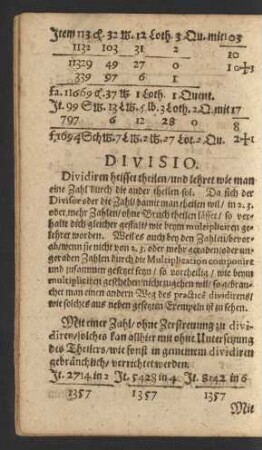 Item 113 cℓ. 32 W. 12 Loth. 3 Qu. mit 103
1132 103 31 2 10
11329 49 27 0 10+3
339 97 6 1
f2. 11669 cℓ. 37 W 1 Loth. 1 Quent.
It. 99 S W. 13 L W. 5. lb. 3 Loth. 2. Q. mit 17
797 6 12 28 0 8
f. 1694 Sch W. 7 L W. 2 W. 27 Lot. 2 Qu. 2+1
DIVISIO.
Dividiren heisset theilen/ und lehret wie man
eine Zahl durch die ander theilen sol. Da sich der
Divisor oder die Zahl/ damit man theilen wil/ in 2. 3.
oder mehr Zahlen/ ohne Bruch theilen lässet/ so ver-
halt dichs gleicher gestalt/ wie beym multipliciren ge-
lehret worden. Weil es auch bey den Zahlen/ bevor
ab/ wenn sie nicht von 2. 3. oder mehr graden/ oder un-
geraden Zahlen durch die Multiplication componirt
und zusammen gesetzet seyn/ so vortheilig/ wie beym
multipliciren geschehen/ nicht zugehen wil/ so gebrau-
chet man einen andern Weg des practicè dividirens/
wie solches aus neben gesetzten Exempeln ist zu sehen.
Mit einer Zahl/ ohne Zerstrewung zu divi-
diren/ solches kan allhier mit ohne Untersetzung
des Theilers/ wie sonst in gemeinem dividiren
gebräuchlich/ verrichtet werden.
It. 2714 in 2 It. 5428 in 4. It. 8142 in 6
1357 1357 1357
Mit